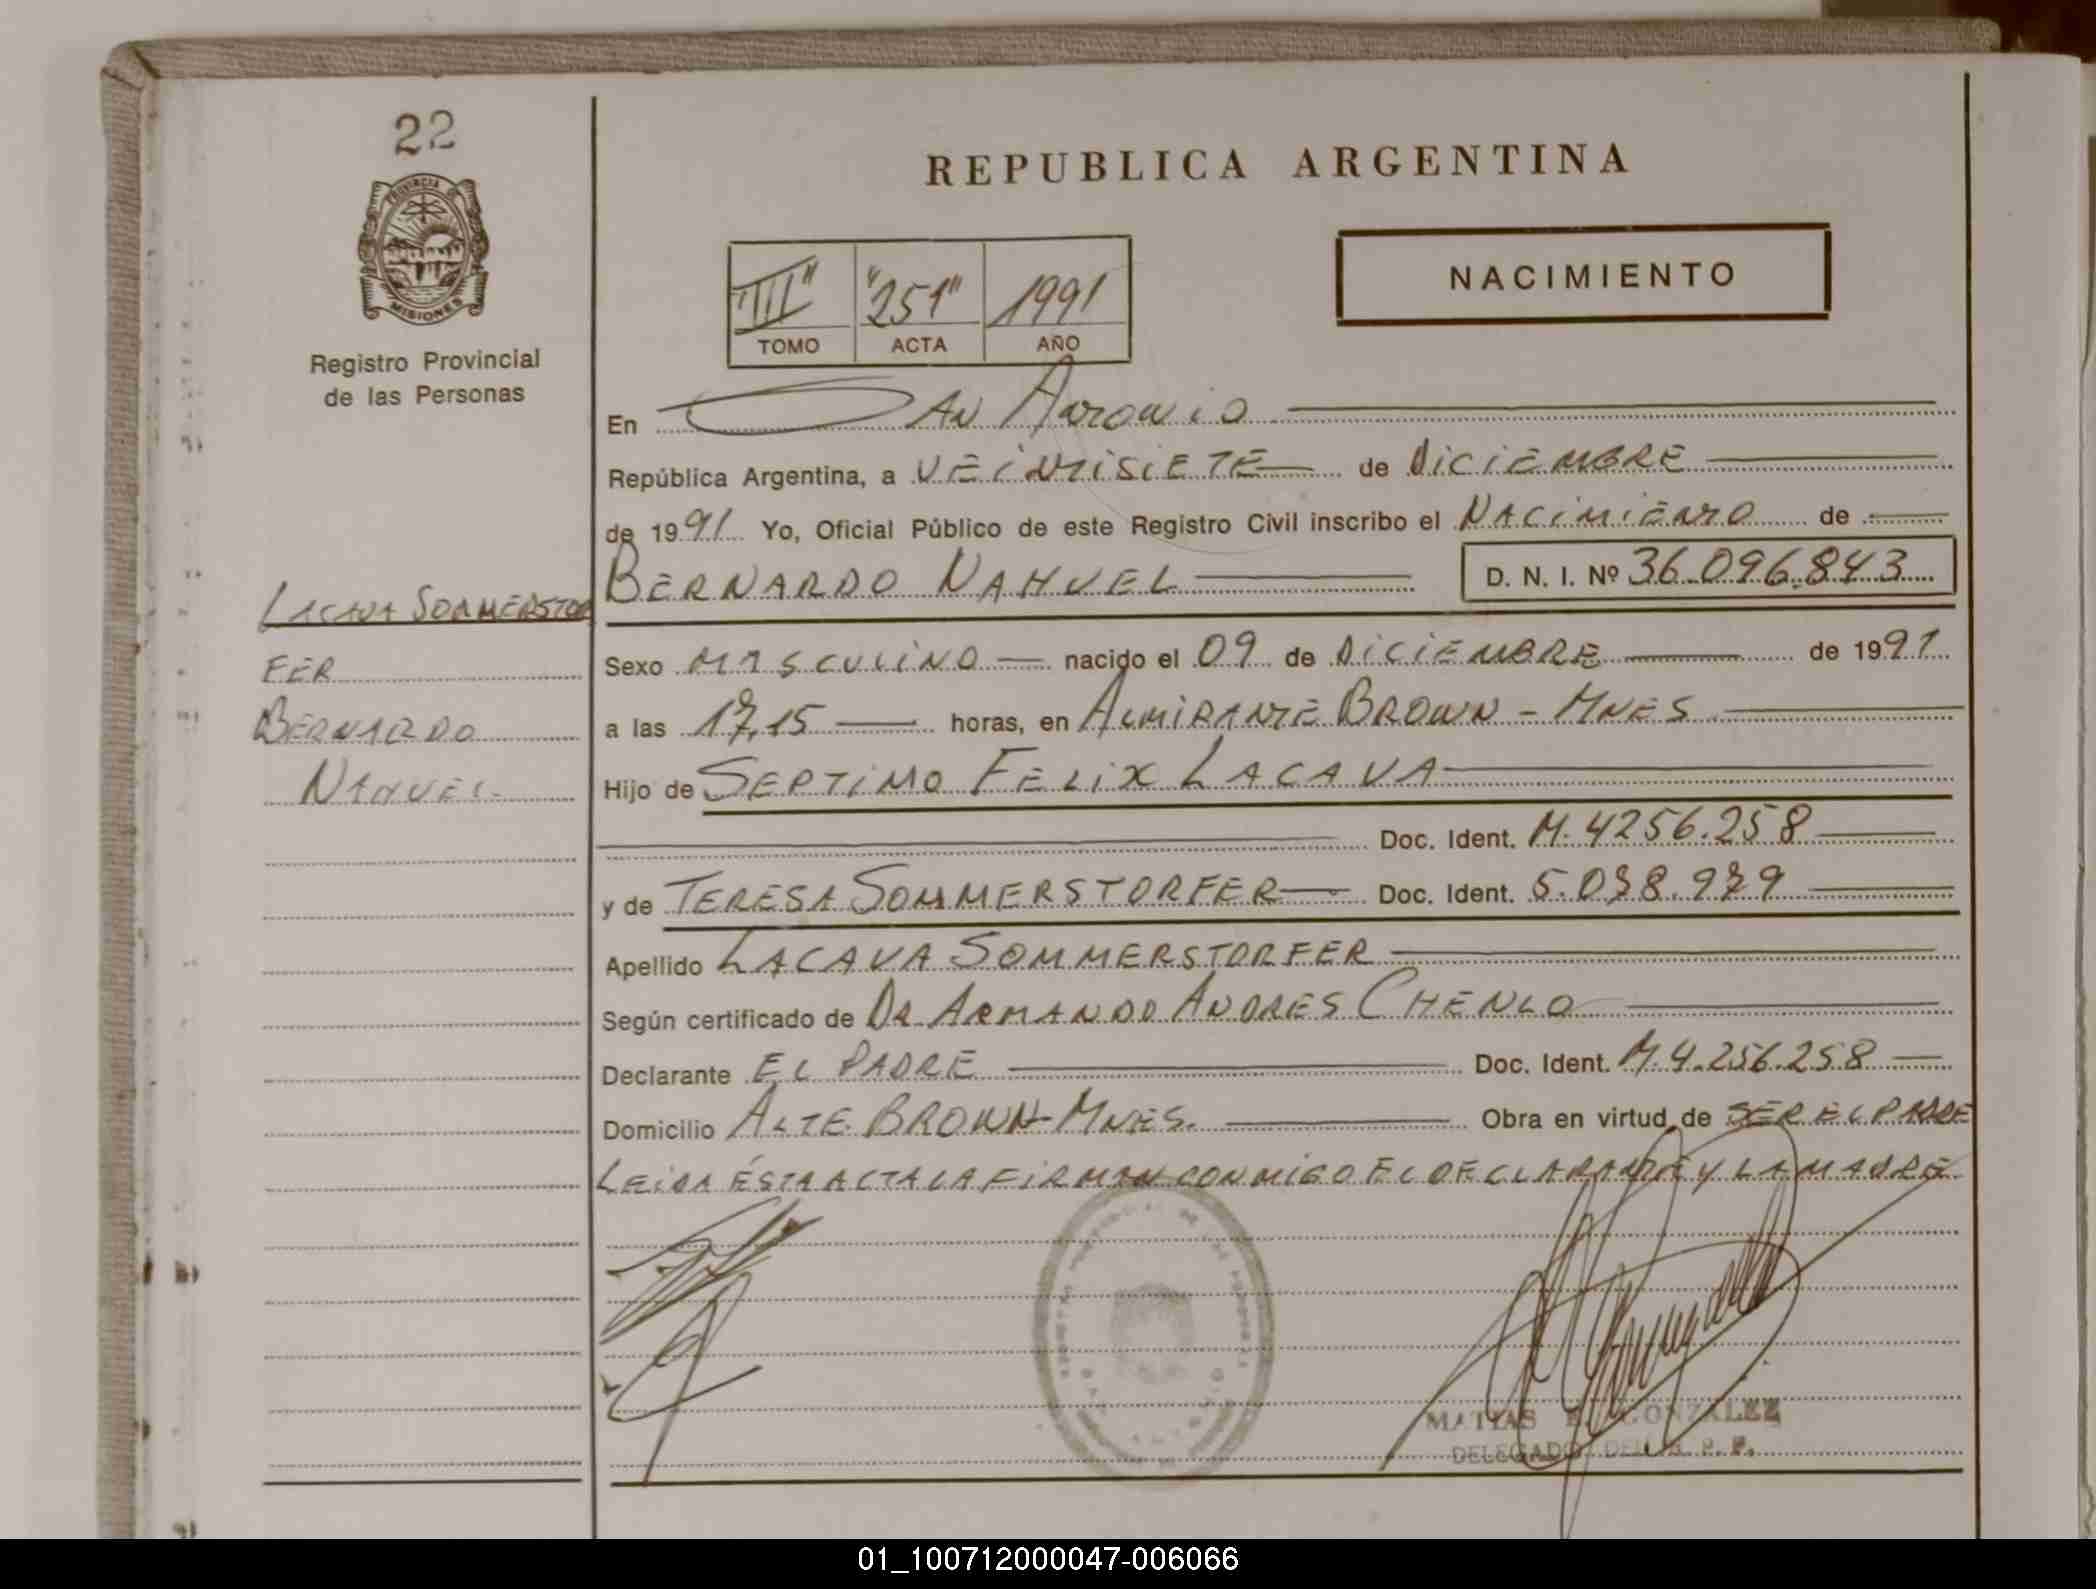 22
PROVINCIA DE
MISIONES
Registro Provincial
de las Personas
LACAVA SOMMERSTOR
FER
BERNARDO
NAHUEL
REPUBLICA ARGENTINA
NACIMIENTO
"III" "251" 1991
TOMO ACTA AÑO
En SAN ANTONIO
República Argentina, a VEINTISIETE de DICIEMBRE
de 1991 Yo, Oficial Público de este Registro Civil inscribo el NACIMIENTO de
BERNARDO NAHUEL D. N. I. Nº 36.096.843
Sexo MASCULINO nacido el 09 de DICIEMBRE de 1991
a las 17,15 horas, en ALMIRANTE BROWN - MNES
Hijo de SEPTIMO FELIX LACAVA
Doc. Ident. M. 4256.258
y de TERESA SOMMERSTORFER Doc. Ident. 5.078.979
Apellido LACAVA SOMMERSTORFER
Según certificado de DR ARMANDO ANDRES CHENLO
Declarante EL PADRE Doc. Ident. M. 4.256.258
Domicilio ALTE. BROWN-MNES. Obra en virtud de SER EL PADRE
LEIDA ÉSTA ACTA LA FIRMAN CONMIGO EL DECLARANTE Y LA MADRE
MATIAS GONZALEZ
DELEGADO DEL R. P. P.
01_100712000047-006066